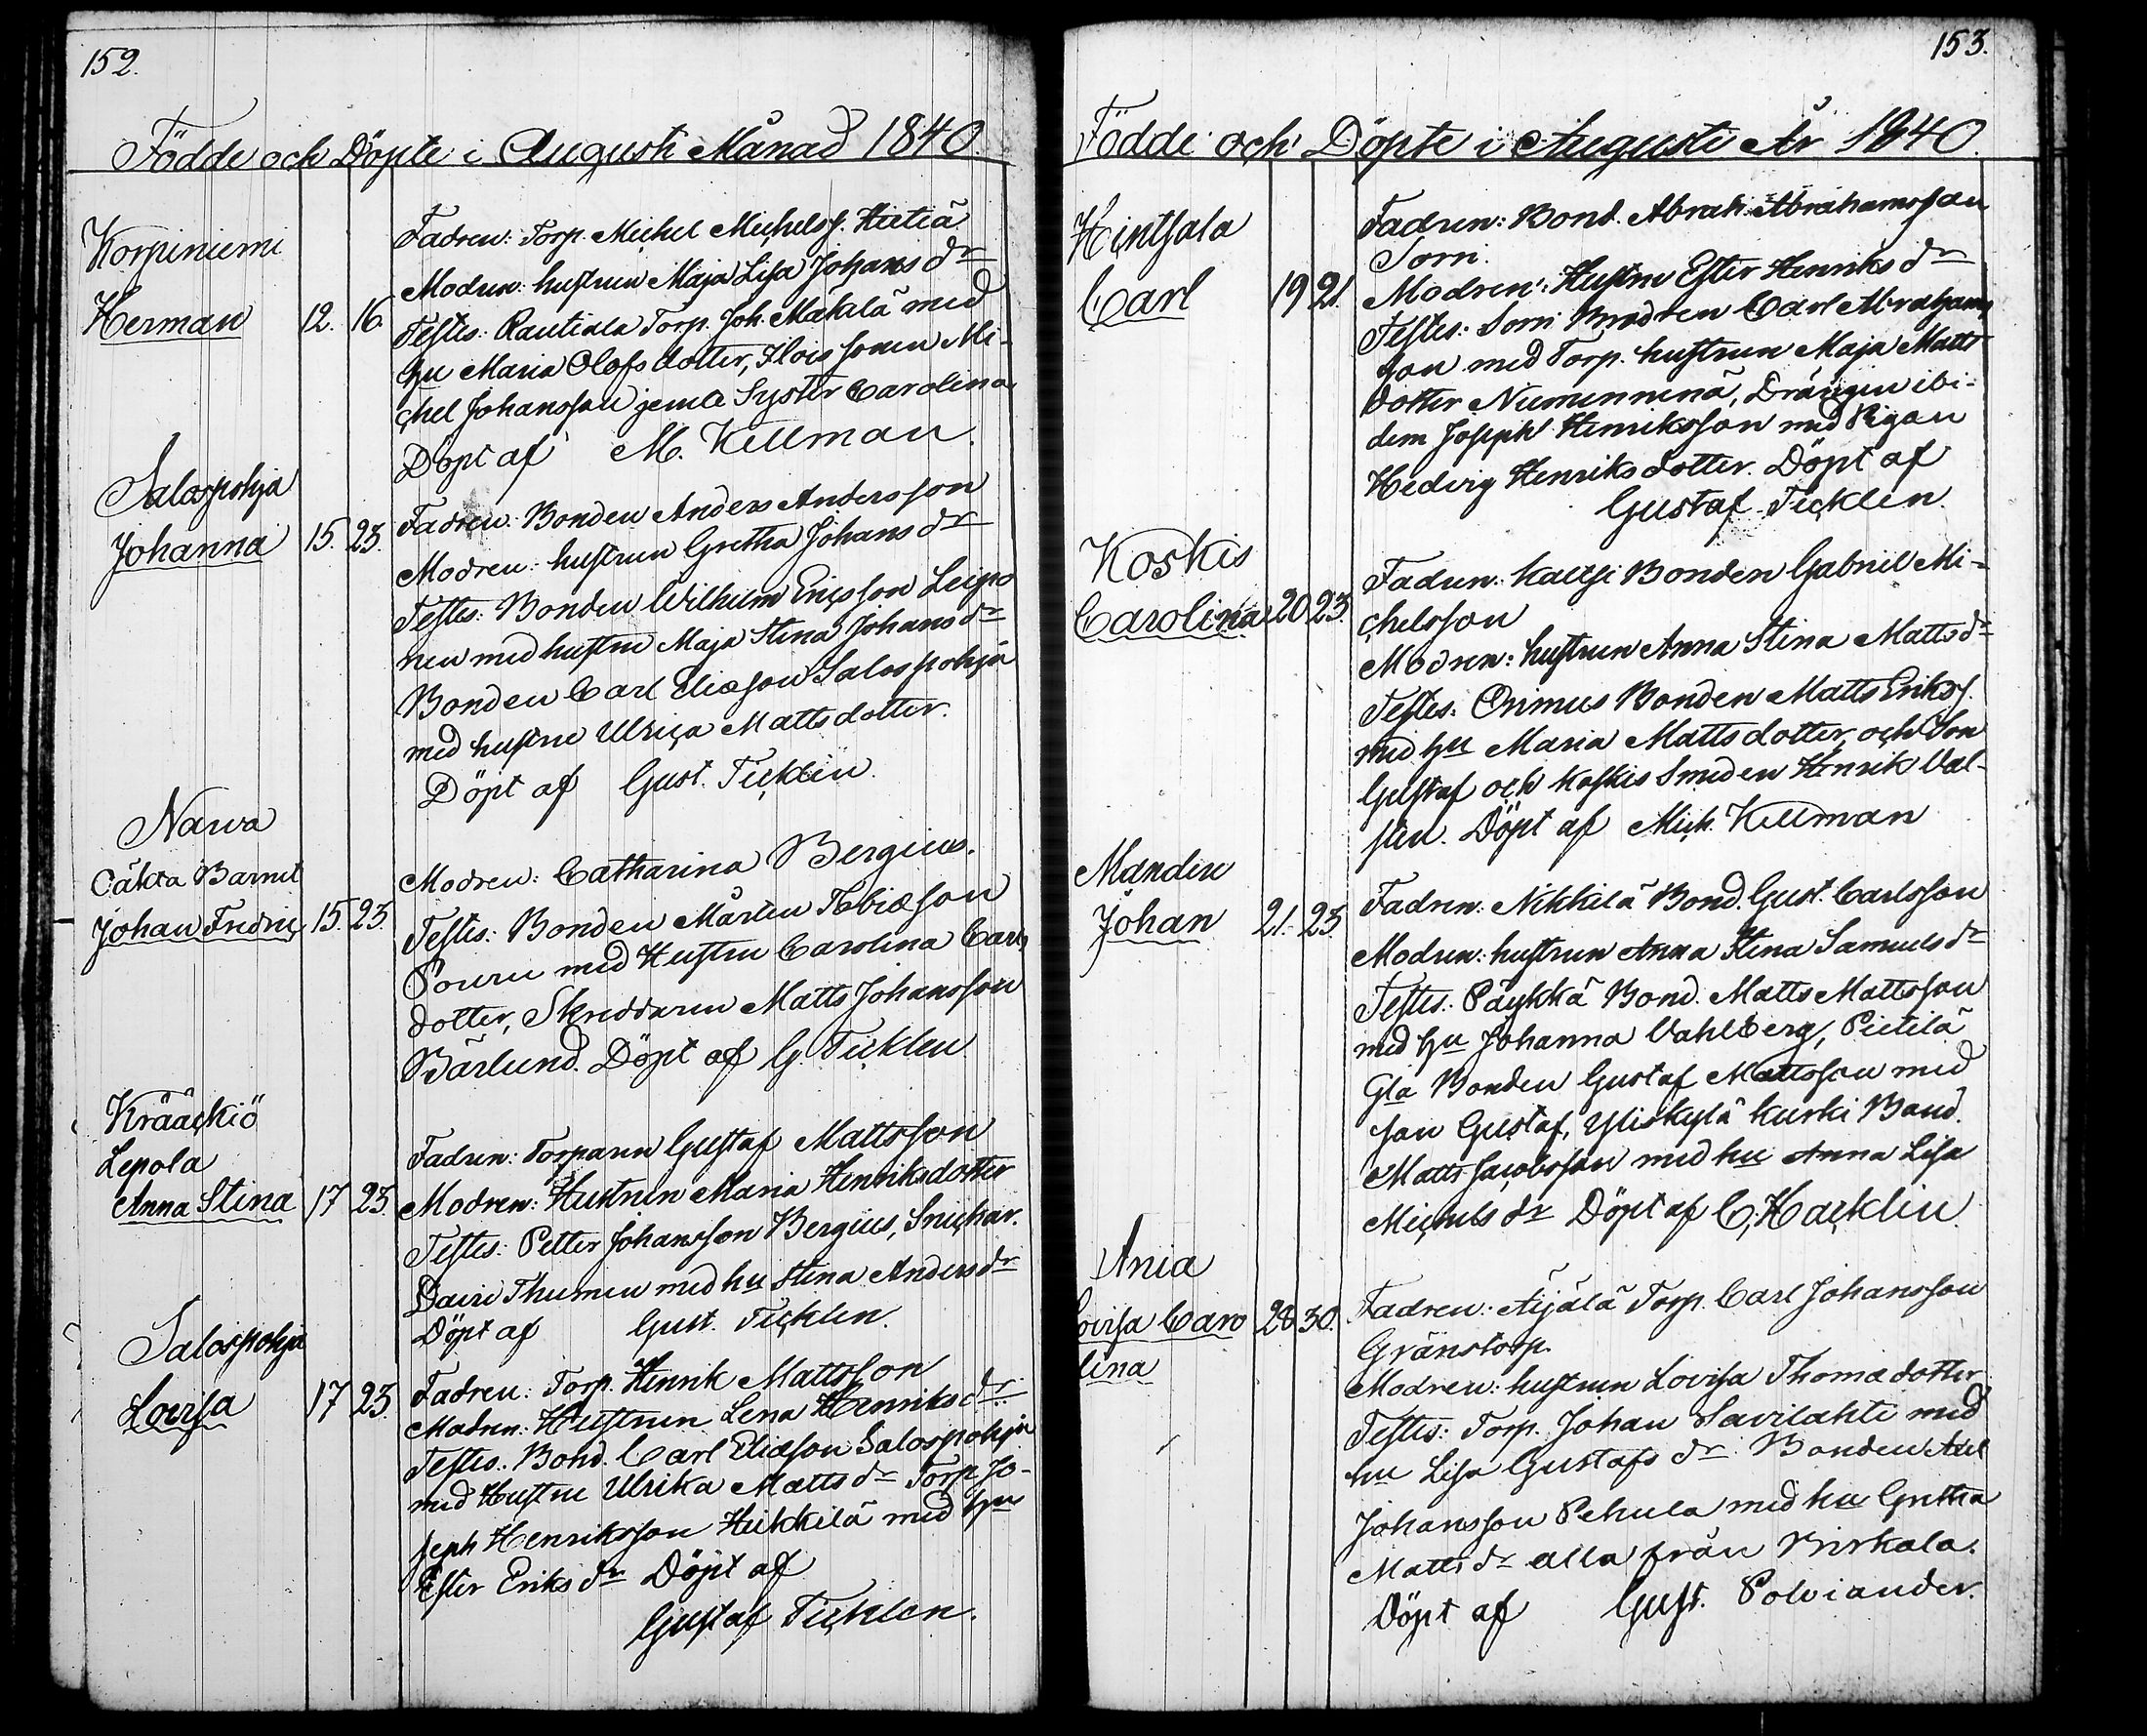 152.
Födde och Döpte i Augusti Månad 1840.
Korpiniemi
Herman 12. 16.
Fadren: Torp. Michel Michelss. Hietiä
Modren: hustrun Maja Lisa Johans dr
Testes: Rautiala Torp. Joh. Mäkilä med
hu Maria Olofsdotter, Ilois sonen Mi-
chel Johansson jemte Syster Carolina
Döpt af M. Kellman.
Salospohja
Johanna 15. 23.
Fadren: Bonden Anders Andersson
Modren: hustrun Gretha Johans dr
Testes: Bonden Wilhelm Ericsson Leipo
nen med hustru Maja Stina Johans dr
Bonden Carl Eliæson Salospohja
med hustru Ulrica Mattsdotter.
Döpt af Gust. Ticklén.
Narva
Oäkta Barnet
Johan Fredric 15. 23.
Modren: Catharina Bergius.
Testes: Bonden Mårten Tobiæson
Pouru med Hustru Carolina Carls
dotter, Skreddaren Matts Johansson
Bärlund. Döpt af G. Ticklen
Krääckiö
Lepola
Anna Stina 17 23.
Fadren: Torparen Gustaf Mattsson
Modren: Hustrun Maria Henriksdotter
Testes: Petter Johansson Bergius, Snickar.
Thumen med hu Stina Anders dr
Döpt af Gust. Ticklen.
Salospohja
Lovisa 17 23.
Fadren: Torp. Henrik Mattsson
Modren: Hustrun Lena Henriks dr
Testes: Bond. Carl Eliæson Salospohja
med Hustru Ulrika Matts dr Torp. Jo-
seph Henriksson Heikkilä med hu
Ester Eriks dr Döpt af
Gustaf Ticklen.
153.
Födde och Döpte i Augusti År 1840.
Hintsala
Carl 19 21.
Fadren: Bond. Abrah. Abrahamsson
Sorri.
Modren: Hustru Ester Henriks dr
Testes: Sorri Brodren Carl Abrahams
son med Torp. hustrun Maja Matts
dotter Nieminenä, Drängen ibi-
dem Joseph Henriksson med Pigan
Hedvig Henriksdotter. Döpt af
Gustaf Ticklen.
Koskis
Carolina 20 23.
Fadren: Kaitji Bonden Gabriel Mi-
chelsson
Modren: hustrun Anna Stina Matts dr
Testes: Onimus Bonden Matts Erikss.
med hu Maria Mattsdotter, och Son
Gustaf och Koskis Smeden Henrik Val-
sten. Döpt af Mich. Kellman
Manden
Johan 21. 23.
Fadren: Nikkilä Bond. Gust. Carlsson
Modren: hustrun Anna Stina Samuels dr
Testes: Päykkä Bond. Matts Mattsson
med hu Johanna Vahlberg, Pietilä
Gla Bonden Gustaf Mattsson med
son Gustaf, Yliskylä Kurki Bond.
Matts Jacobsson med hu Anna Lisa
Michels dr Döpt af C. Hacklin
Ania
Lovisa Caro 28 30.
lina
Fadren: Äijälä Torp. Carl Johansson
Gränstorp.
Modren: hustrun Lovisa Thomadotter
Testes: Torp. Johan Savilahti med
hu Lisa Gustafs dr Bonden Axel
Johansson Pehula med hu Gretha
Matts dr alla från Birkala.
Döpt af Gust. Polviander.